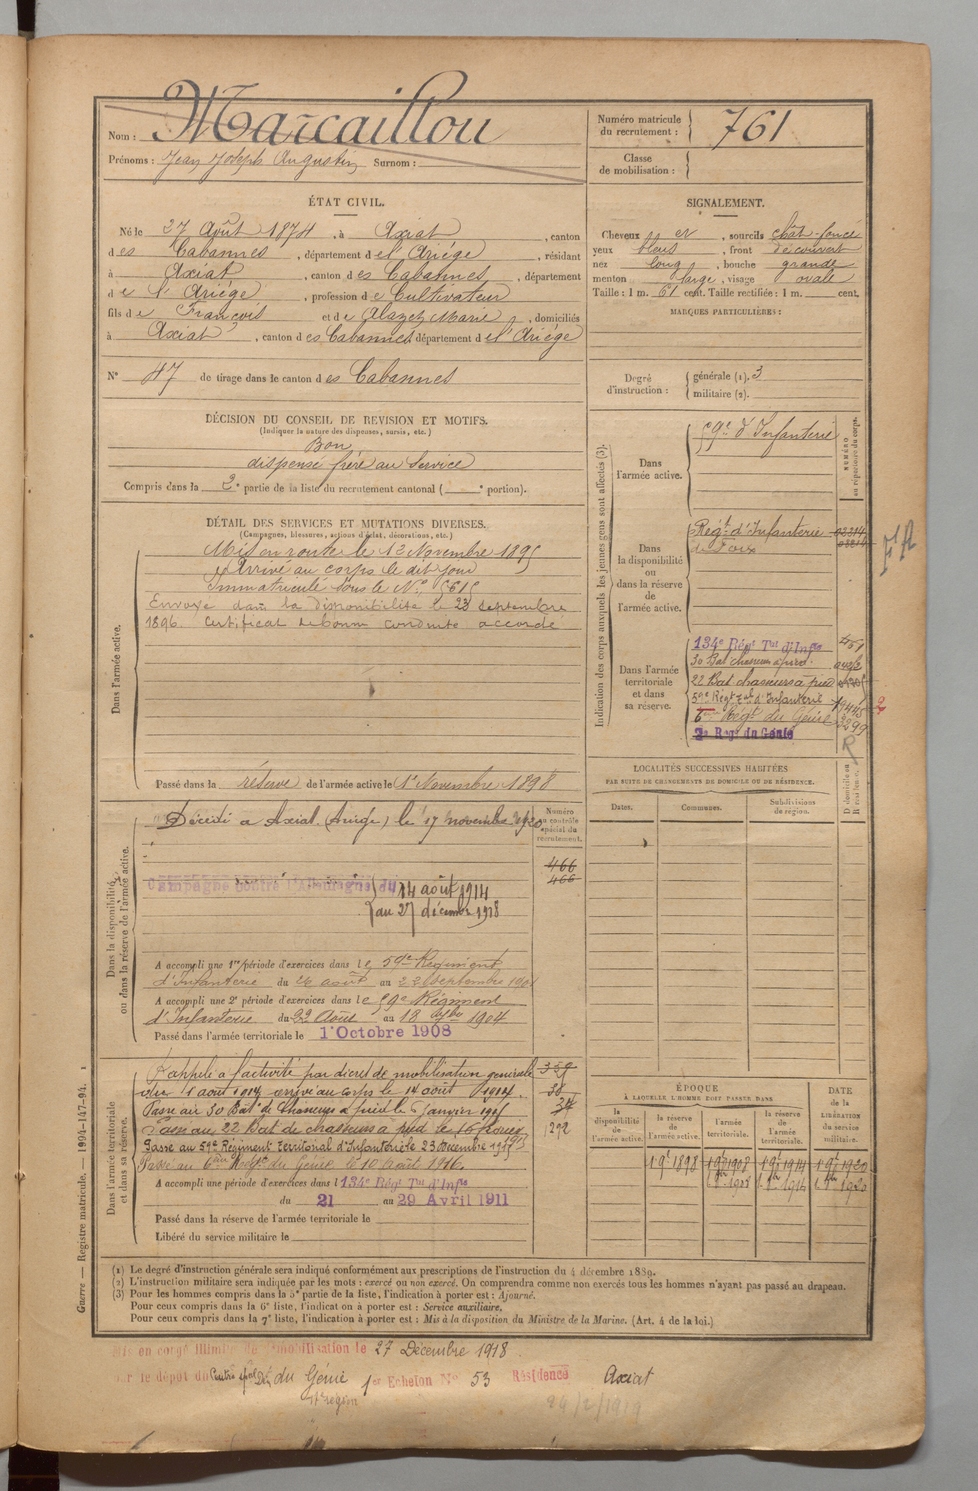 Nom : Marcaillou
Prénoms : Jean Joseph Augustin Surnom :
Numéro matricule du recrutement : 761
Classe de mobilisation :
ÉTAT CIVIL.
Né le 27 Août 1874, à Axiat, canton
des Cabannes, département de l'Ariége, résidant
à Axiat, canton des Cabannes, département
de l'Ariége, profession de Cultivateur
fils de François et de Alazet Marie, domiciliés
à Axiat, canton des Cabannes, département de l'Ariége
N° 47 de tirage dans le canton des Cabannes
DÉCISION DU CONSEIL DE REVISION ET MOTIFS.
(Indiquer la nature des dispenses, sursis, etc.)
Bon
dispensé frère au Service
Compris dans la 2e partie de la liste du recrutement cantonal ( e portion).
DÉTAIL DES SERVICES ET MUTATIONS DIVERSES.
(Campagnes, blessures, actions d'éclat, décorations, etc.)
Dans l'armée active.
Mis en route le 12 Novembre 1895
Arrivé au corps le dit jour
Immatriculé sous le N° 5615
Envoyé dans la disponibilité le 23 septembre
1896. Certificat de bonne conduite accordé
Passé dans la réserve de l'armée active le 1er Novembre 1898
Dans la disponibilité ou dans la réserve de l'armée active.
Décédé à Axiat (Ariége) le 17 novembre 1920
Numéro au contrôle spécial du recrutement.
466
466
Campagne contre l'Allemagne du 14 août 1914
au 27 décembre 1918
A accompli une 1re période d'exercices dans le 59e Régiment
d'Infanterie du 26 août au 22 Septembre 1901
A accompli une 2e période d'exercices dans le 59e Régiment
d'Infanterie du 22 Août au 18 7bre 1904
Passé dans l'armée territoriale le 1er Octobre 1908
Dans l'armée territoriale et dans sa réserve.
Rappelé à l'activité par décret de mobilisation générale
du 1 août 1914 arrivé au corps le 14 août 1914.
Passé au 30 Bat. de Chasseurs à pied le 6 janvier 1915
Passé au 22 Bat de chasseurs à pied le 16 février 1915
Passé au 59e Régiment territorial d'Infanterie le 23
Passé au 6ème Régt du Génie le 10 Août 1916.
A accompli une période d'exercices dans l 134e Régt Tal d'Infie
du 21 au 29 Avril 1911
Passé dans la réserve de l'armée territoriale le
Libéré du service militaire le
SIGNALEMENT.
Cheveux et, sourcils chât-foncé
yeux bleus, front découvert
nez long, bouche grande
menton large, visage ovale
Taille : 1 m. 61 cent. Taille rectifiée : 1 m. cent.
MARQUES PARTICULIÈRES :
Degré d'instruction : générale (1). 3
militaire (2).
Indication des corps auxquels les jeunes gens sont affectés (3).
NUMÉRO au répertoire du corps.
Dans l'armée active.
59e d'Infanterie
Dans la disponibilité ou dans la réserve de l'armée active.
Regt d'Infanterie
de Foix
Dans l'armée territoriale et dans sa réserve.
134e Régt Tal d'Infie
30 Bat chasseurs à pied.
22 Bat chasseurs à pied
59e Regt tal d'Infanterie
6ème Régt du Génie 3299
2e Regt du Génie
R
LOCALITÉS SUCCESSIVES HABITÉES
PAR SUITE DE CHANGEMENTS DE DOMICILE OU DE RÉSIDENCE.
Dates. Communes. Subdivisions de région. D domicile ou R résidence.
ÉPOQUE
À LAQUELLE L'HOMME DOIT PASSER DANS
la disponibilité de l'armée active.
la réserve de l'armée active.
l'armée territoriale.
la réserve de l'armée territoriale.
DATE de la LIBÉRATION du service militaire.
1 9e 1898 1 9e 1908 1 9e 1914 1 9e 1920
(1) Le degré d'instruction générale sera indiqué conformément aux prescriptions de l'instruction du 4 décembre 1889.
(2) L'instruction militaire sera indiquée par les mots : exercé ou non exercé. On comprendra comme non exercés tous les hommes n'ayant pas passé au drapeau.
(3) Pour les hommes compris dans la 5e partie de la liste, l'indication à porter est : Ajourné.
Pour ceux compris dans la 6e liste, l'indication à porter est : Service auxiliaire.
Pour ceux compris dans la 7e liste, l'indication à porter est : Mis à la disposition du Ministre de la Marine. (Art. 4 de la loi.)
Guerre — Registre matricule. — 1994-147-94.
Mis en congé illimité de démobilisation le 27 Décembre 1918.
par le dépôt du du Génie 1er Echelon N° 53 Résidence Axiat
17e region
24/2/1919